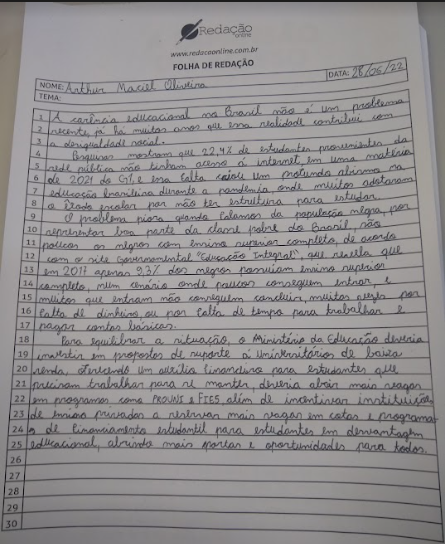 Redação
online
www.redacaonline.com.br
FOLHA DE REDAÇÃO
NOME: Arthur Maciel Oliveira DATA: 28/06/22
TEMA:
1 A carência educacional no Brasil não é um problema
2 recente, já há muitos anos que essa realidade contribui com
3 a desigualdade social.
4 Pesquisas mostram que 22,4% de estudantes provenientes da
5 rede pública não tinham acesso à internet, em uma matéria
6 de 2021 do G1, e essa falta cavou um profundo abismo na
7 educação brasileira durante a pandemia, onde muitos adotaram
8 a escolar por não ter estrutura para estudar.
9 O problema piora quando falamos da população negra, por
10 representar boa parte da classe pobre do Brasil, são
11 poucos os negros com ensino superior completo, de acordo
12 com o site governamental "Educação Integral", que revela que
13 em 2017 apenas 9,3% dos negros possuíam ensino superior
14 completo, num cenário onde poucos conseguem entrar, e
15 muitos que entram não conseguem concluir, muitas vezes por
16 falta de dinheiro, ou por falta de tempo para trabalhar e
17 pagar contas básicas.
18 Para equilibrar a situação, o Ministério da Educação deveria
19 investir em propostas de suporte a Universitários de baixa
20 renda, oferecendo um auxílio financeiro para estudantes que
21 precisam trabalhar para se manter, deveria abrir mais vagas
22 em programas como PROUNS e FIES, além de incentivar instituições
23 de ensino privadas a reservar mais vagas em cotas e programa-
24 s de financiamento estudantil para estudantes em desvantagem
25 educacional, abrindo mais portas e oportunidades para todos.
26
27
28
29
30